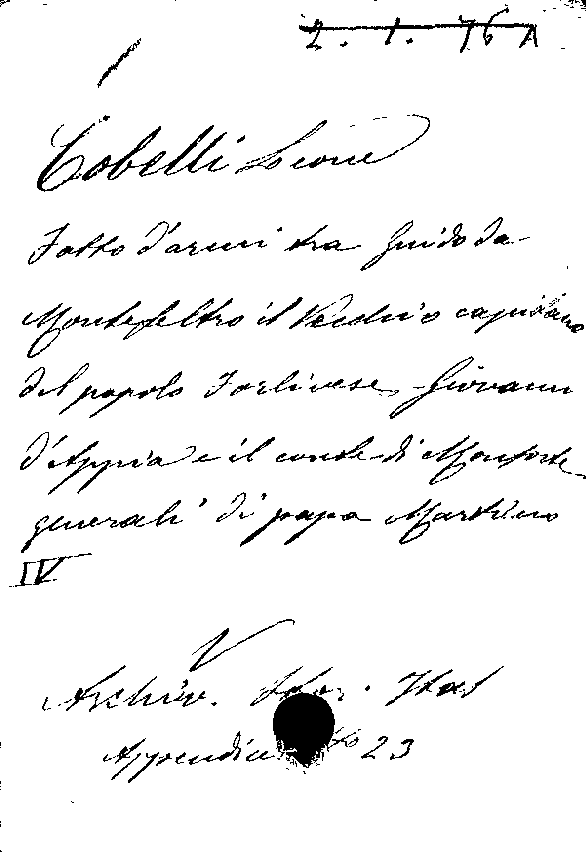 2. 1. 76 A
Cobelli Leone
Fatto d'armi tra Guido da
Montefeltro il Vecchio capitano
del popolo Forlivese, Giovanni
d'Appia e il conte di Monforte
generali di papa Martino
IV
Archiv. Stor. Ital
Appendice 23